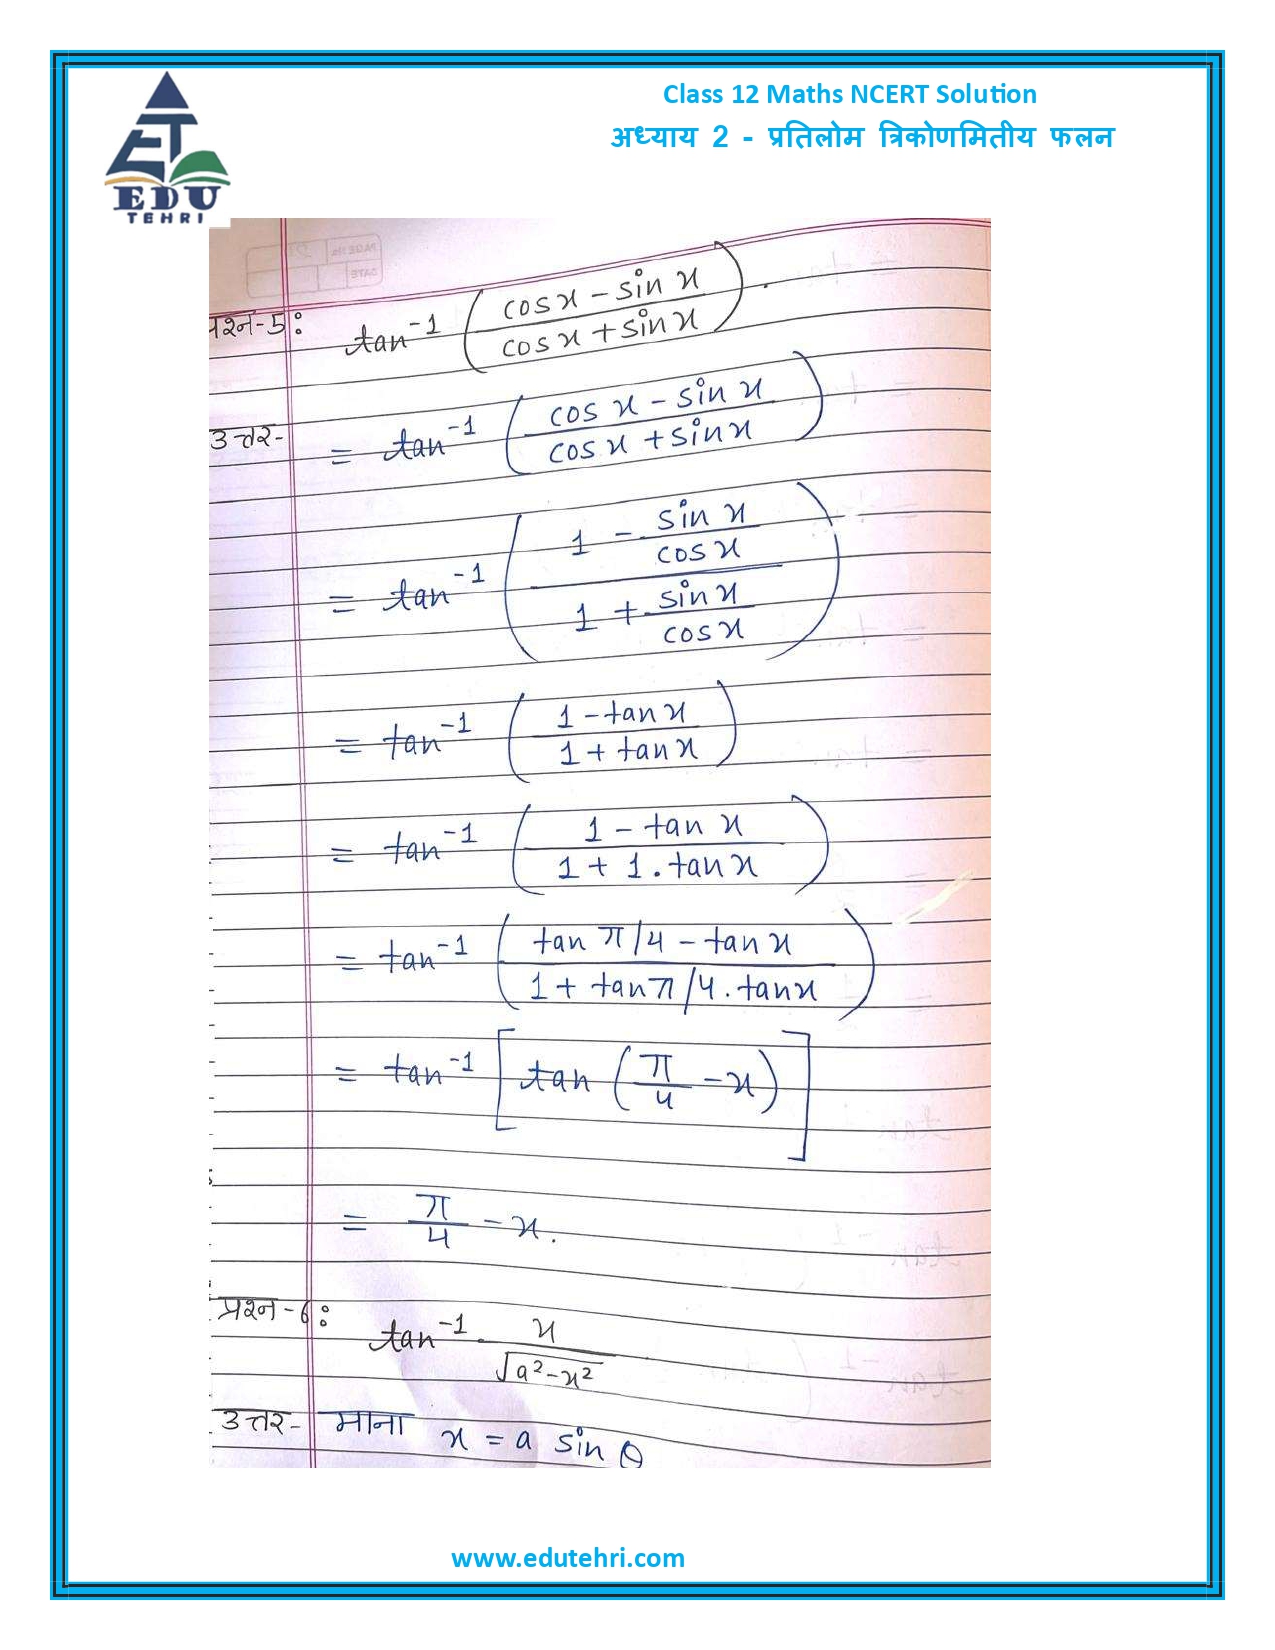 Class 12 Maths NCERT Solution
अध्याय 2 - प्रतिलोम त्रिकोणमितीय फलन
ET
EDU
TEHRI
प्रश्न-5: tan⁻¹ ( (cos x - sin x) / (cos x + sin x) ).
उत्तर- = tan⁻¹ ( (cos x - sin x) / (cos x + sin x) )
= tan⁻¹ ( (1 - sin x / cos x) / (1 + sin x / cos x) )
= tan⁻¹ ( (1 - tan x) / (1 + tan x) )
= tan⁻¹ ( (1 - tan x) / (1 + 1 . tan x) )
= tan⁻¹ ( (tan π/4 - tan x) / (1 + tan π/4 . tan x) )
= tan⁻¹ [ tan ( π/4 - x ) ]
= π/4 - x.
प्रश्न-6: tan⁻¹ x / √(a² - x²)
उत्तर- माना x = a sin θ
www.edutehri.com